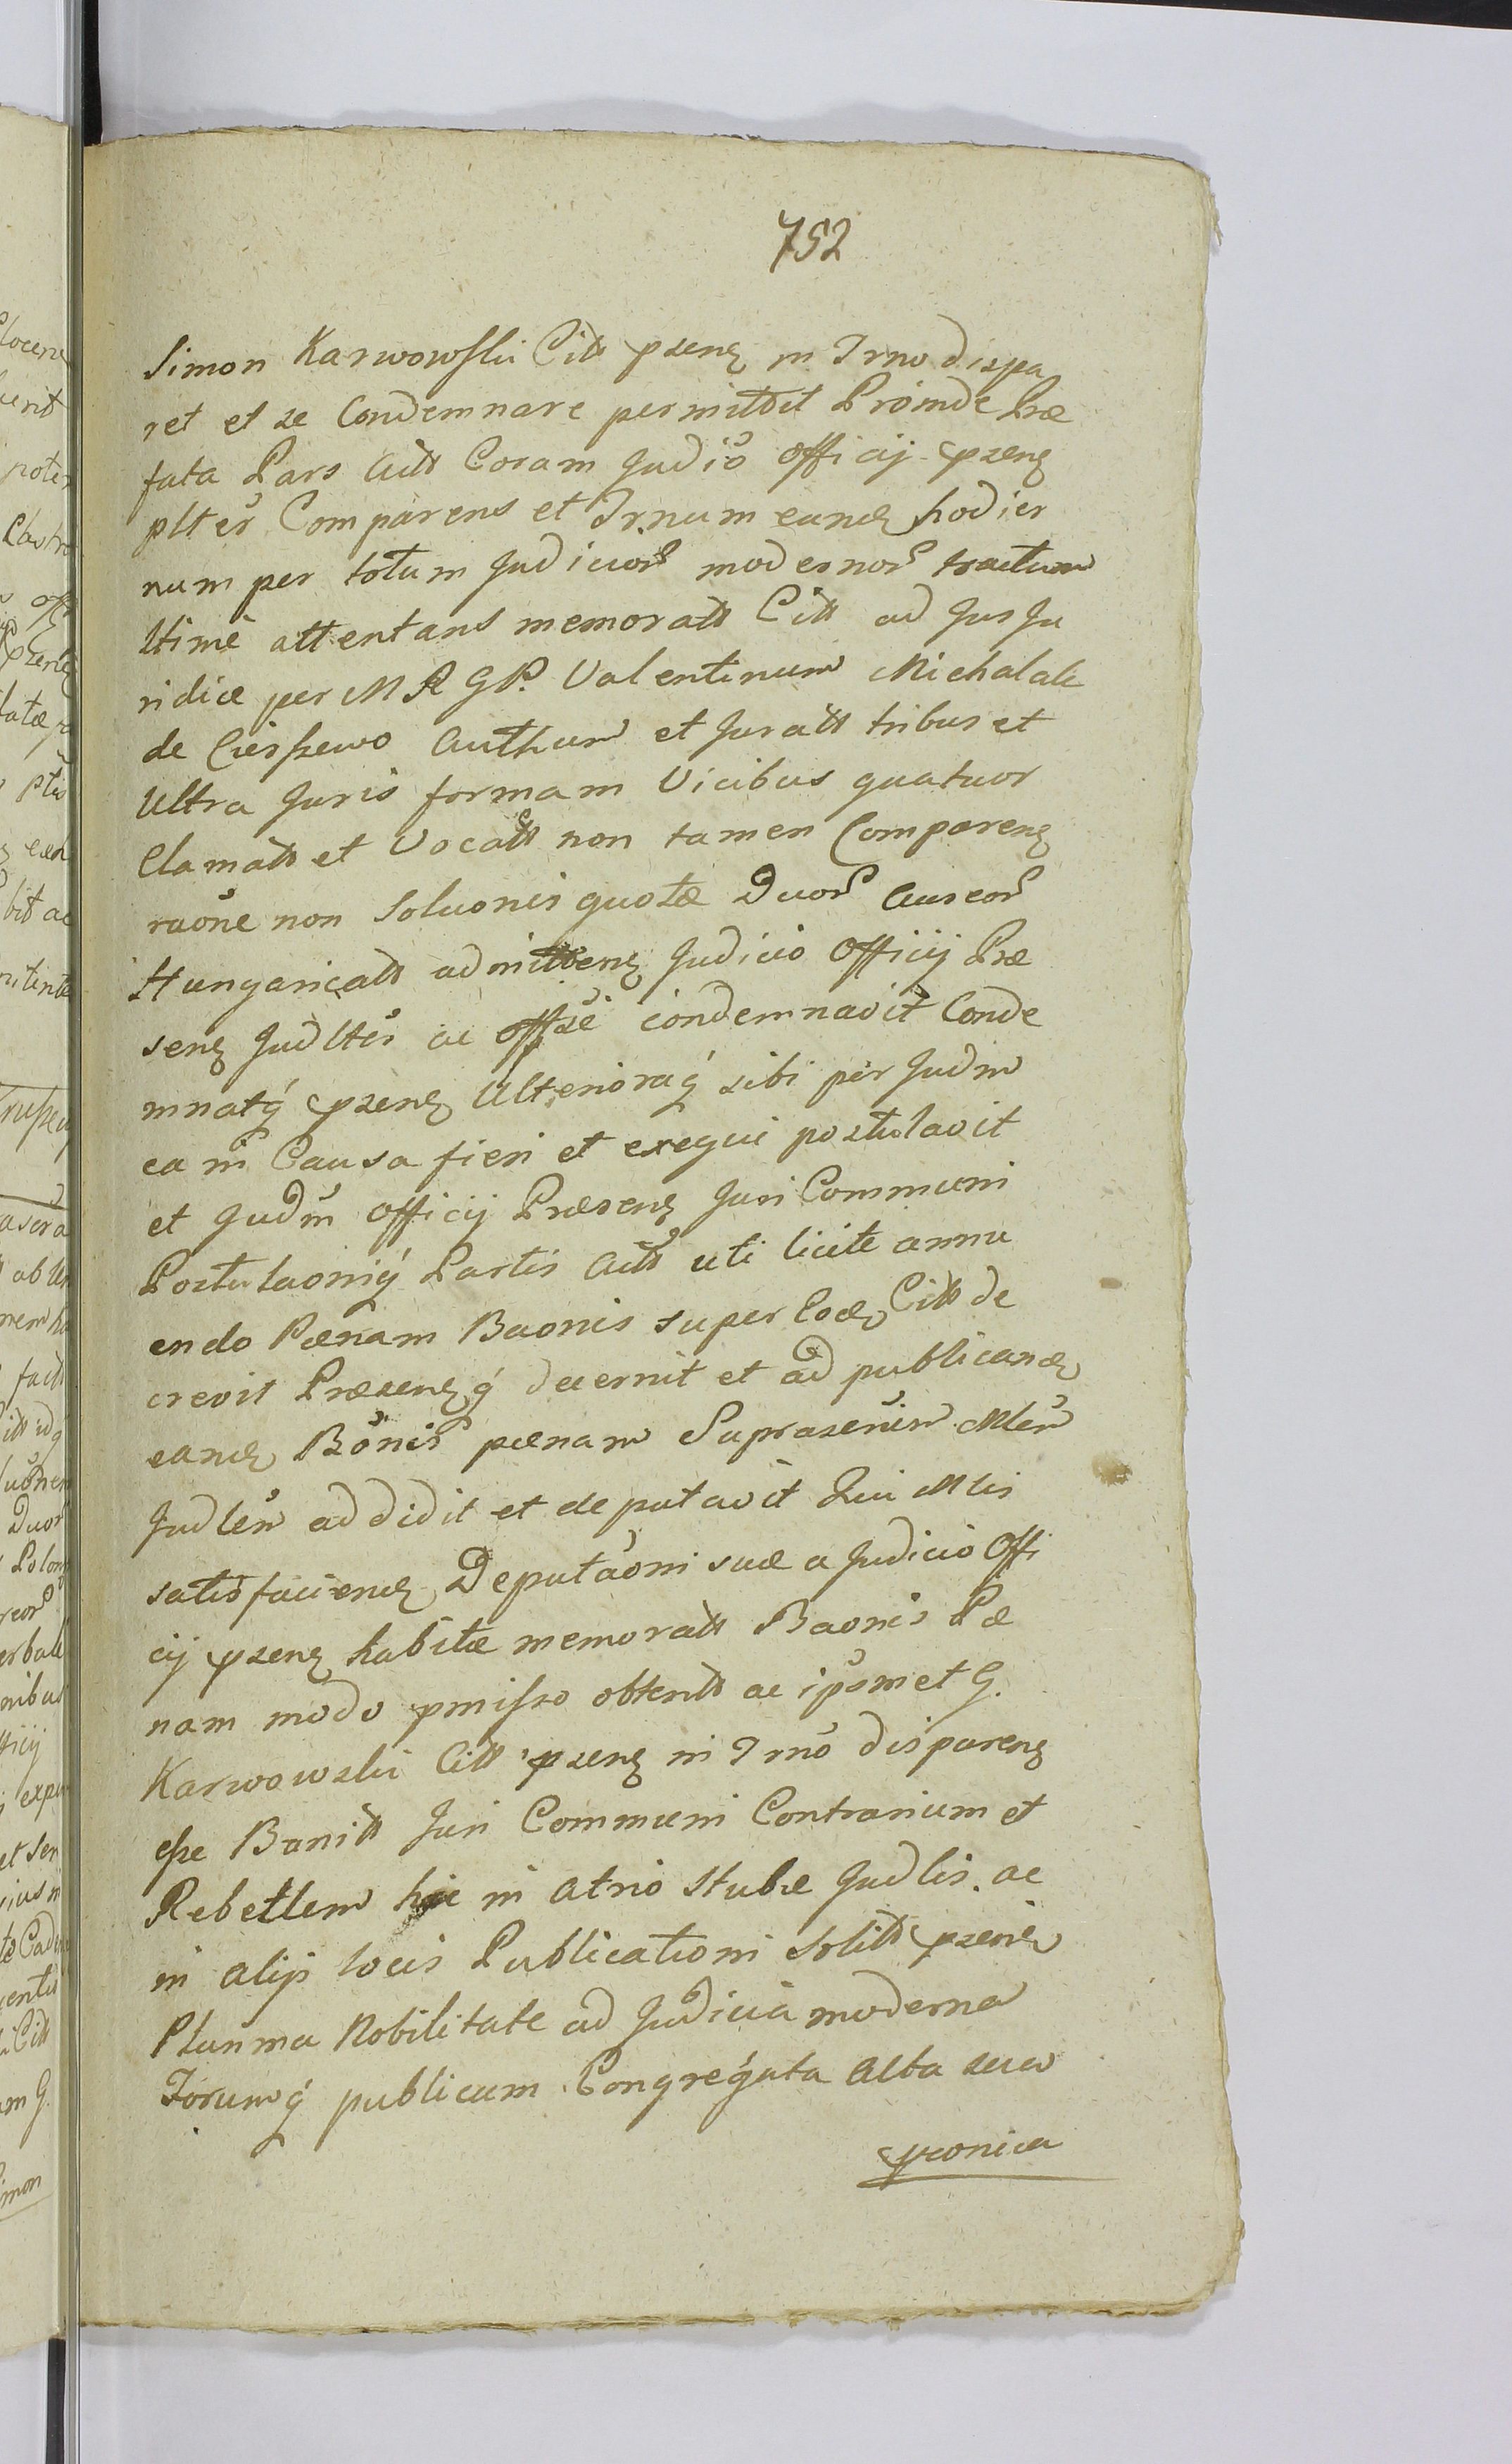 752
Simon Karwowski Citt pseng in Trno dispa
ret et se Condemnare permittit Proinde Præ
fata Pars Actt Coram Judiō Officij pseng
plter Comparens et Trnum eund hodier
num per totum Judicior modernor tractum
ltime attentans memoratt Citt ad Jus Ju
ridice per M R G P. Valentinum Michalak
de Cierpewo Authum et Juratt tribus et
Ultra Juris formam Vicibus quatuor
Clamatt et Vocatt non tamen Compareng
raōne non Soluonis quotæ Duor Aureor
Hungaricatt admitteng Judicio Officij Præ
seng Judlter ac Offsē condemnavit Conde
mnatq pseng Ulterioraq sibi per Judm
ea in Causa fieri et exequi postulavit
et Judm Officij Præseng Juri Communi
Postulaoniq Partis Actt uti licite annu
endo Pænam Baonis super Eod Citt de
crevit Præsengq decernit et ad publicand
eand Bōnis pænam Suprascrim Mlem
Judlem addidit et deputavit Qui Mlis
satisfaciend Deputaōni suæ a Judicio Offi
cij pseng habitæ memoratt Baonis Pæ
nam modo pmisso obtentt ac ipsmet G.
Karwowski Citt pseng in Trnō dispareng
esse Banitt Juri Communi Contrarium et
Rebellem hic in Atrio Stubæ Judlis ac
in alijs locis Publicationi Solitt pseng
Plurima Nobilitate ad Judicia moderna
Forumq publicum Congregata Alta sua
pconica